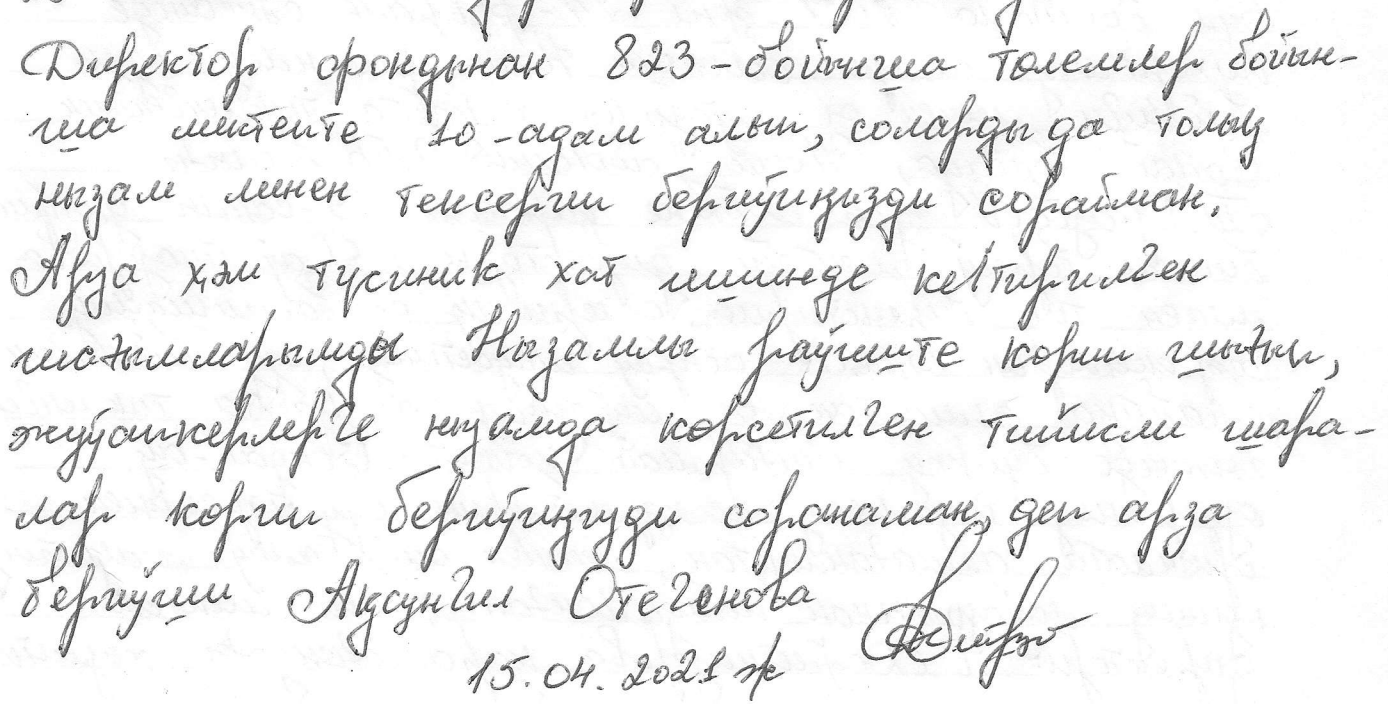 Директор фондынан 823-бойынша төлемлер бойын-
ша мектепте 10-адам алып, соларды да толық
нызам менен тексерип бериўиңизди сорайман,
Арза ҳәм түсиник хат ишинде келтирилген
шағымларымды Нызамлы рәўиште көрип шығып,
жуўапкерлерге нызамда көрсетилген тийисли шара-
лар көрип бериўиңизди соранаман, деп арза
бериўши Ақсунгил Отегенова
15.04.2021 ж